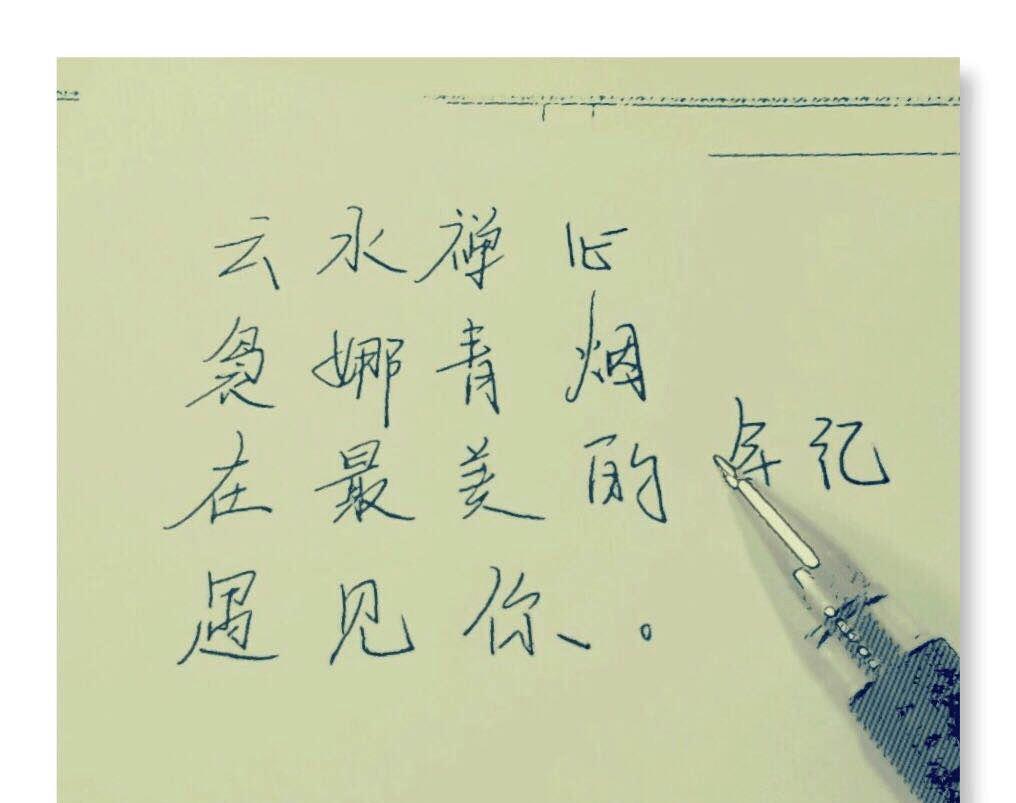 云水禅心
袅娜青烟
在最美的年纪
遇见你。